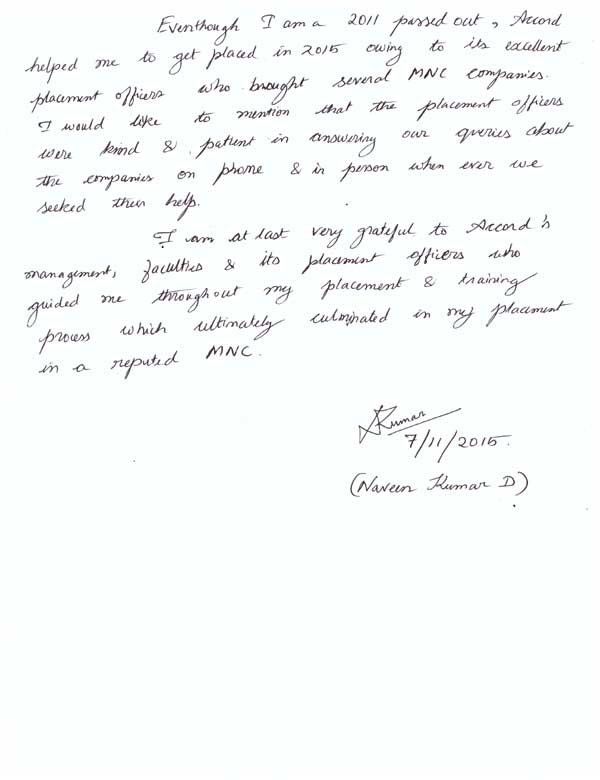 Eventhough I am a 2011 passed out, Accord
helped me to get placed in 2015 owing to its excellent
placement officers who brought several MNC companies.
I would like to mention that the placement officers
were kind & patient in answering our queries about
the companies on phone & in person when ever we
seeked their help.
I am at last very grateful to Accord's
management, faculties & its placement officers who
guided me throughout my placement & training
process which ultimately culminated in my placement
in a reputed MNC.
Kumar
7/11/2015.
(Naveen Kumar D)